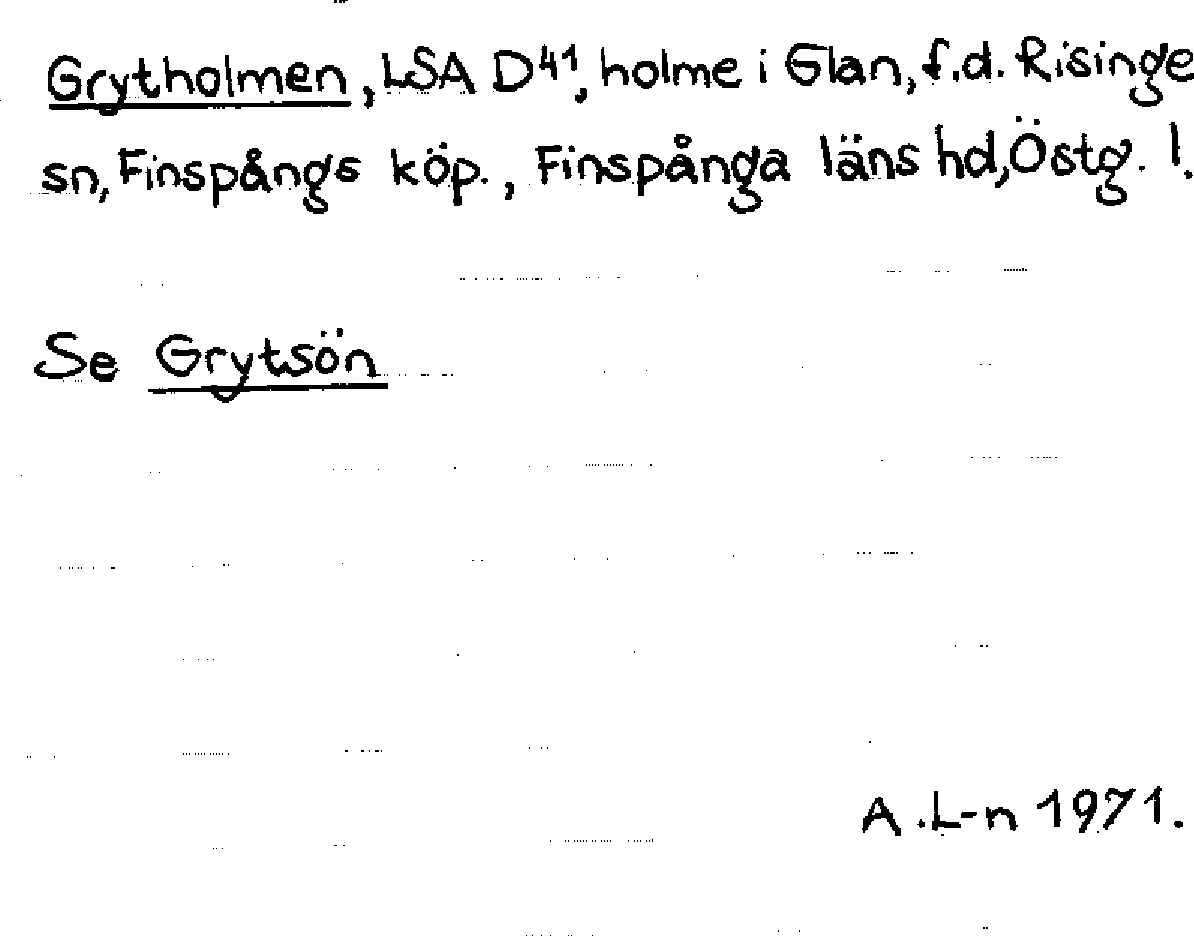 Grytholmen, LSA D41, holme i Glan, f.d. Risinge
sn, Finspångs köp., Finspånga läns hd, Östg. l.
Se Grytsön
A.L-n 1971.